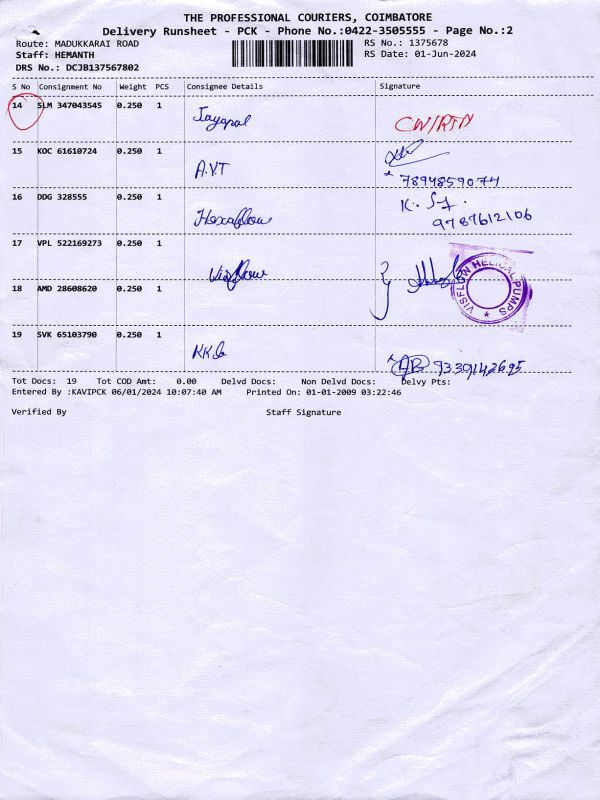 THE PROFESSIONAL COURIERS, COIMBATORE
Delivery Runsheet - PCK - Phone No.:0422-3505555 - Page No.:2
Route: MADUKKARAI ROAD RS No.: 1375678
Staff: HEMANTH RS Date: 01-Jun-2024
DRS No.: DCJB137567802
S No Consignment No Weight PCS Consignee Details Signature
14 SLM 347043545 0.250 1 Jayapal CN/RTN
15 KOC 61610724 0.250 1 A.V.T 7894859074
16 DDG 328555 0.250 1 Hexaflow 9787612106
17 VPL 522169273 0.250 1 Visflow
VISFLOW HELICAL PUMPS
18 AMD 28608620 0.250 1
19 SVK 65103790 0.250 1 9339142695
Tot Docs: 19 Tot COD Amt: 0.00 Delvd Docs: Non Delvd Docs: Delvy Pts:
Entered By :KAVIPCK 06/01/2024 10:07:40 AM Printed On: 01-01-2009 03:22:46
Verified By Staff Signature